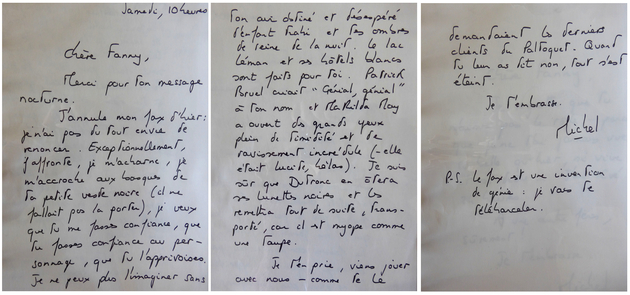 Samedi, 10 heures
Chère Fanny,
Merci pour ton message
nocturne.
J'annule mon fax d'hier :
je n'ai pas du tout envie de
renoncer. Exceptionnellement,
j'affronte, je m'acharne, je
m'accroche aux basques de
ta petite veste noire (il ne
fallait pas la porter), je veux
que tu me fasses confiance, que
tu fasses confiance au per-
sonnage, que tu l'apprivoises.
Je ne peux plus l'imaginer sans
ton air obstiné et désespéré
d'enfant trahi et tes ombres
de reine de la nuit. Le lac
Léman et ses hôtels blancs
sont faits pour toi. Patrick
Bruel criait "Génial, génial"
à ton nom et Mathilda May
a ouvert des grands yeux
plein de timidité et de
ravissement incrédule (-elle
était lucide, hélas). Je suis
sûr que Dutronc en ôtera
ses lunettes noires et les
remettra tout de suite, trans-
porté, car il est myope comme
une taupe.
Je t'en prie, viens jouer
avec nous - comme te le
demandaient les derniers
clients du Paltoquet. Quand
tu leur as dit non, tout s'est
éteint.
Je t'embrasse.
Michel
P.S. Le fax est une invention
de génie : je vais te
téléharceler.